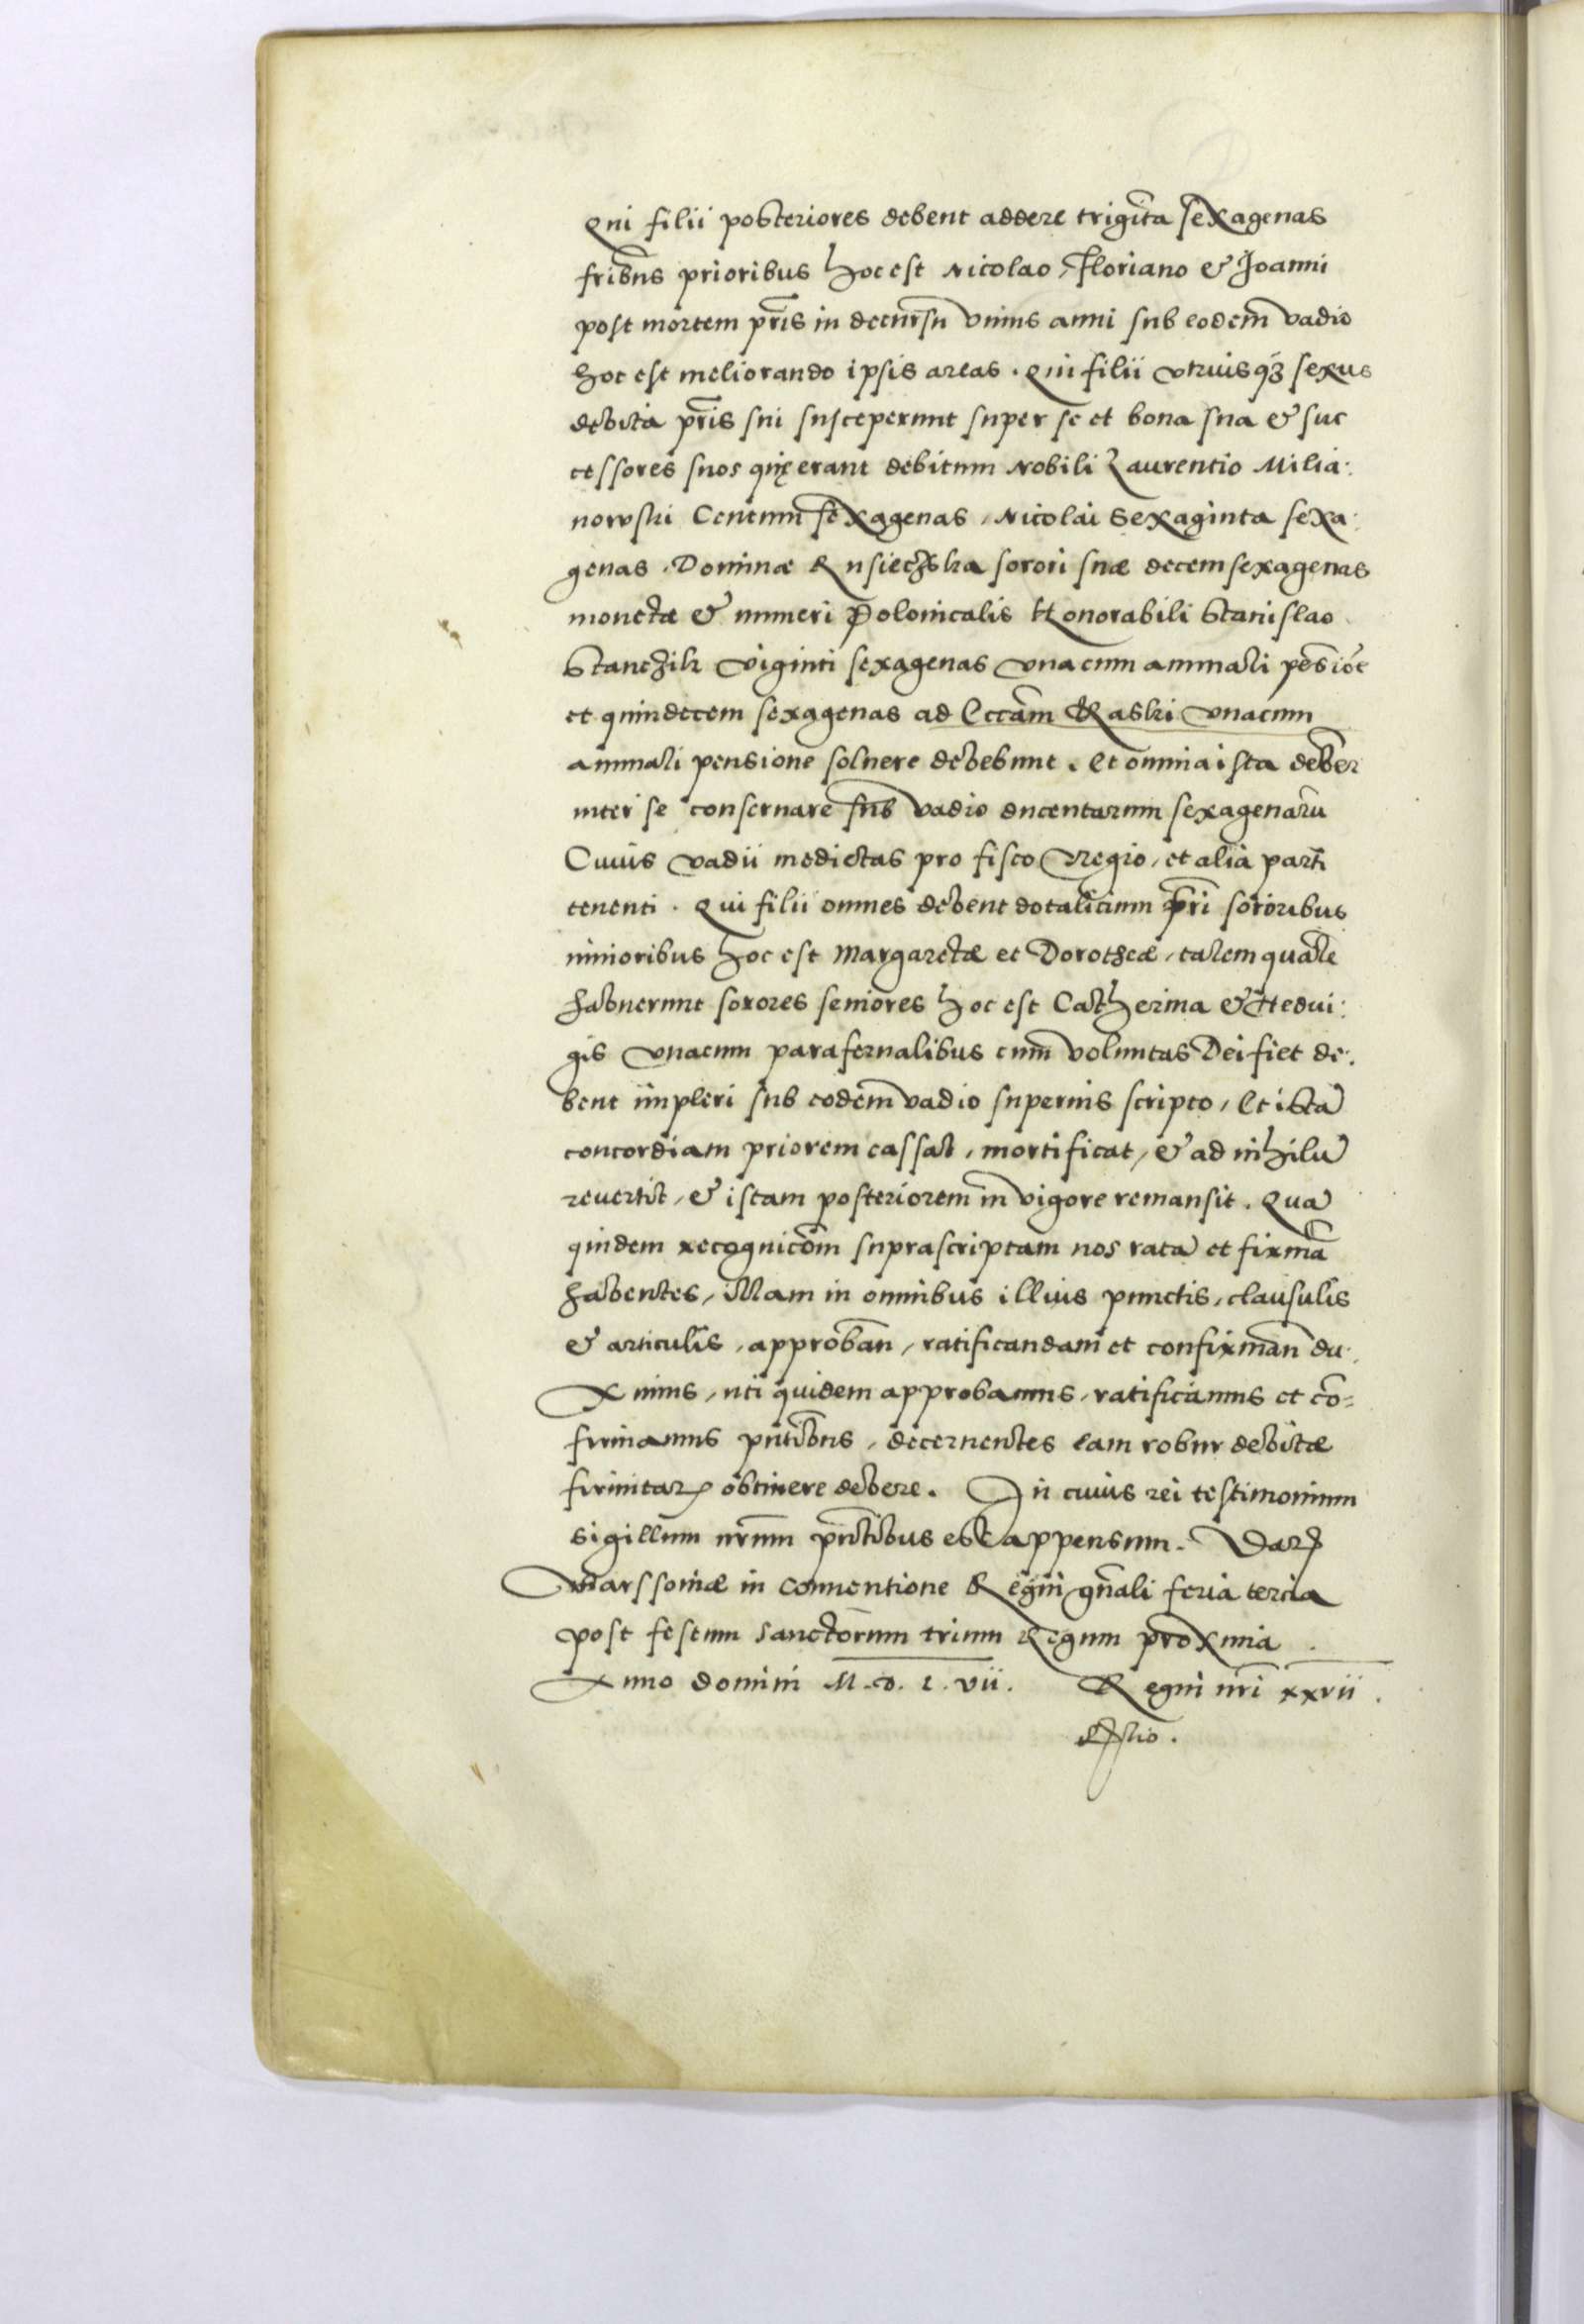 Qui filii posteriores debent addere trigĩta sexagenas
frib̃us prioribus hoc est Nicolao, Floriano & Joanni
post mortem pr̃is in decursu vnius anni sub eodem vadio
hoc est meliorando ipsis areas. Qui filii vtriusqꝫ sexus
debita pr̃is sui susceperunt super se et bona sua & suc
cessores suos quę erant debitum Nobili Laurentio Milia:
nowski Centum sexagenas, Nicolai Sexaginta sexa:
genas. Dominæ Rusiechska sorori suæ decem sexagenas
monetæ & numeri Polonicalis Honorabili Stanislao
Stanchik viginti sexagenas vnacum annuali pẽsiõe
et quindecem sexagenas ad Eccãm Raski vnacum
annuali pensione soluere debebunt. Et omnia ista deber̃
inter se conseruare sub vadio ducentarum sexagenarũ
Cuius vadii medietas pro fisco Regio, et alia parti
tenenti. Qui filii omnes debent dotalicium pr̃i sororibus
iunioribus hoc est Margaretæ et Dorotheæ, talem qualẽ
habuerunt sorores seniores hoc est Catherina & Hedui:
gis vnacum parafernalibus cum voluntas Dei fiet de:
bent impleri sub eodem vadio superius scripto, Et istã
concordiam priorem cassat, mortificat, & ad nihilũ
reuertit, & istam posteriorem in vigore remansit. Quã
quidem recognicõm suprascriptam nos ratã et firmã
habentes, illam in omnibus illius punctis, clausulis
& articulis, approbãn, ratificandam et confirmãn du:
Ximus, uti quidem approbamus, ratificamus et cõ=
firmamus pñtib̃us, decernentes eam robur debitæ
firmitatꝭ obtinere debere. In cuius rei testimonium
sigillum nr̃um pñtibus est appensum. Datꝭ
Warssouiæ in Conuentione Regni gñali feria tercia
post festum Sanctorum trium Regum proxima
Anno domini M.D.L.vii. Regni nr̃i xxvii.